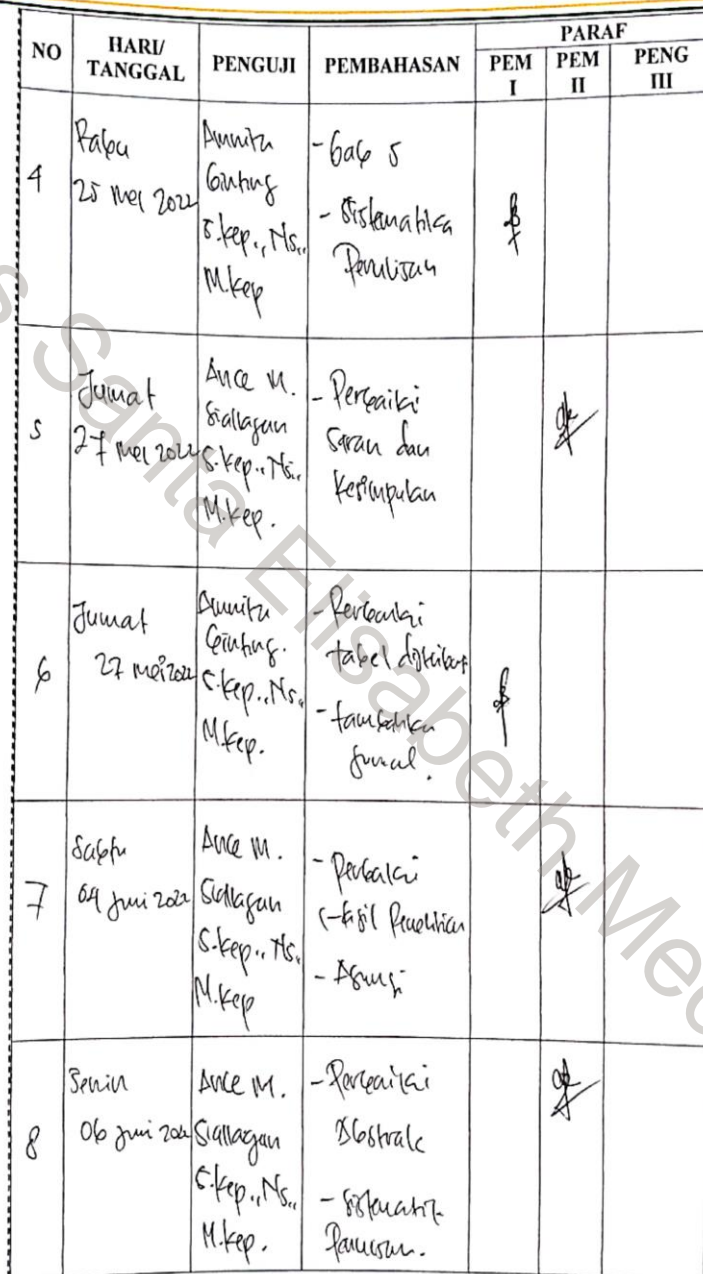 NO HARI/ TANGGAL PENGUJI PEMBAHASAN PARAF
PEM I PEM II PENG III
4
Rabu
25 Mei 2022
Amnita
Ginting
S.kep., Ns.,
M.kep
- bab 5
- Sistematika
Penulisan
5
Jumat
27 Mei 2022
Ance M.
Siallagan
S.kep., Ns.,
M.kep.
- Perbaiki
saran dan
kesimpulan
6
Jumat
27 mei 2022
Amnita
Ginting.
S.kep., Ns.,
M.kep.
- Perbaiki
tabel distribusi
- tambahka
jurnal.
7
Sabtu
04 Juni 2022
Ance M.
Siallagan
S.kep., Ns.,
M.kep
- Perbaiki
Hasil Penelitian
- Asumsi
8
Senin
06 Juni 2022
Ance M.
Siallagan
S.kep., Ns.,
M.kep.
- Perbaiki
Abstrak
- Sistematik
Santa Elisabeth Med